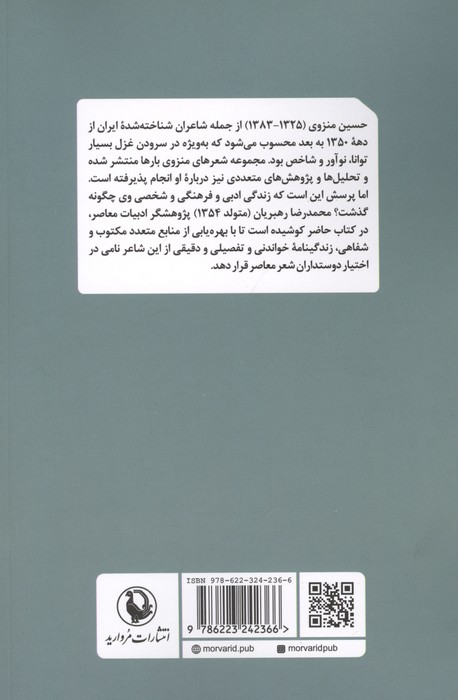 حسین منزوی (۱۳۲۵-۱۳۸۳) از جمله شاعران شناخته‌شدهٔ ایران از
دههٔ ۱۳۵۰ به بعد محسوب می‌شود که به‌ویژه در سرودن غزل بسیار
توانا، نوآور و شاخص بود. مجموعه شعرهای منزوی بارها منتشر شده
و تحلیل‌ها و پژوهش‌های متعددی نیز دربارهٔ او انجام پذیرفته است.
اما پرسش این است که زندگی ادبی و فرهنگی و شخصی وی چگونه
گذشت؟ محمدرضا رهبریان (متولد ۱۳۵۴) پژوهشگر ادبیات معاصر،
در کتاب حاضر کوشیده است تا با بهره‌یابی از منابع متعدد مکتوب و
شفاهی، زندگینامهٔ خواندنی و تفصیلی و دقیقی از این شاعر نامی در
اختیار دوستداران شعر معاصر قرار دهد.
انتشارات مروارید
ISBN 978-622-324-236-6
9 786223 242366 >
morvarid.pub
morvaridpub